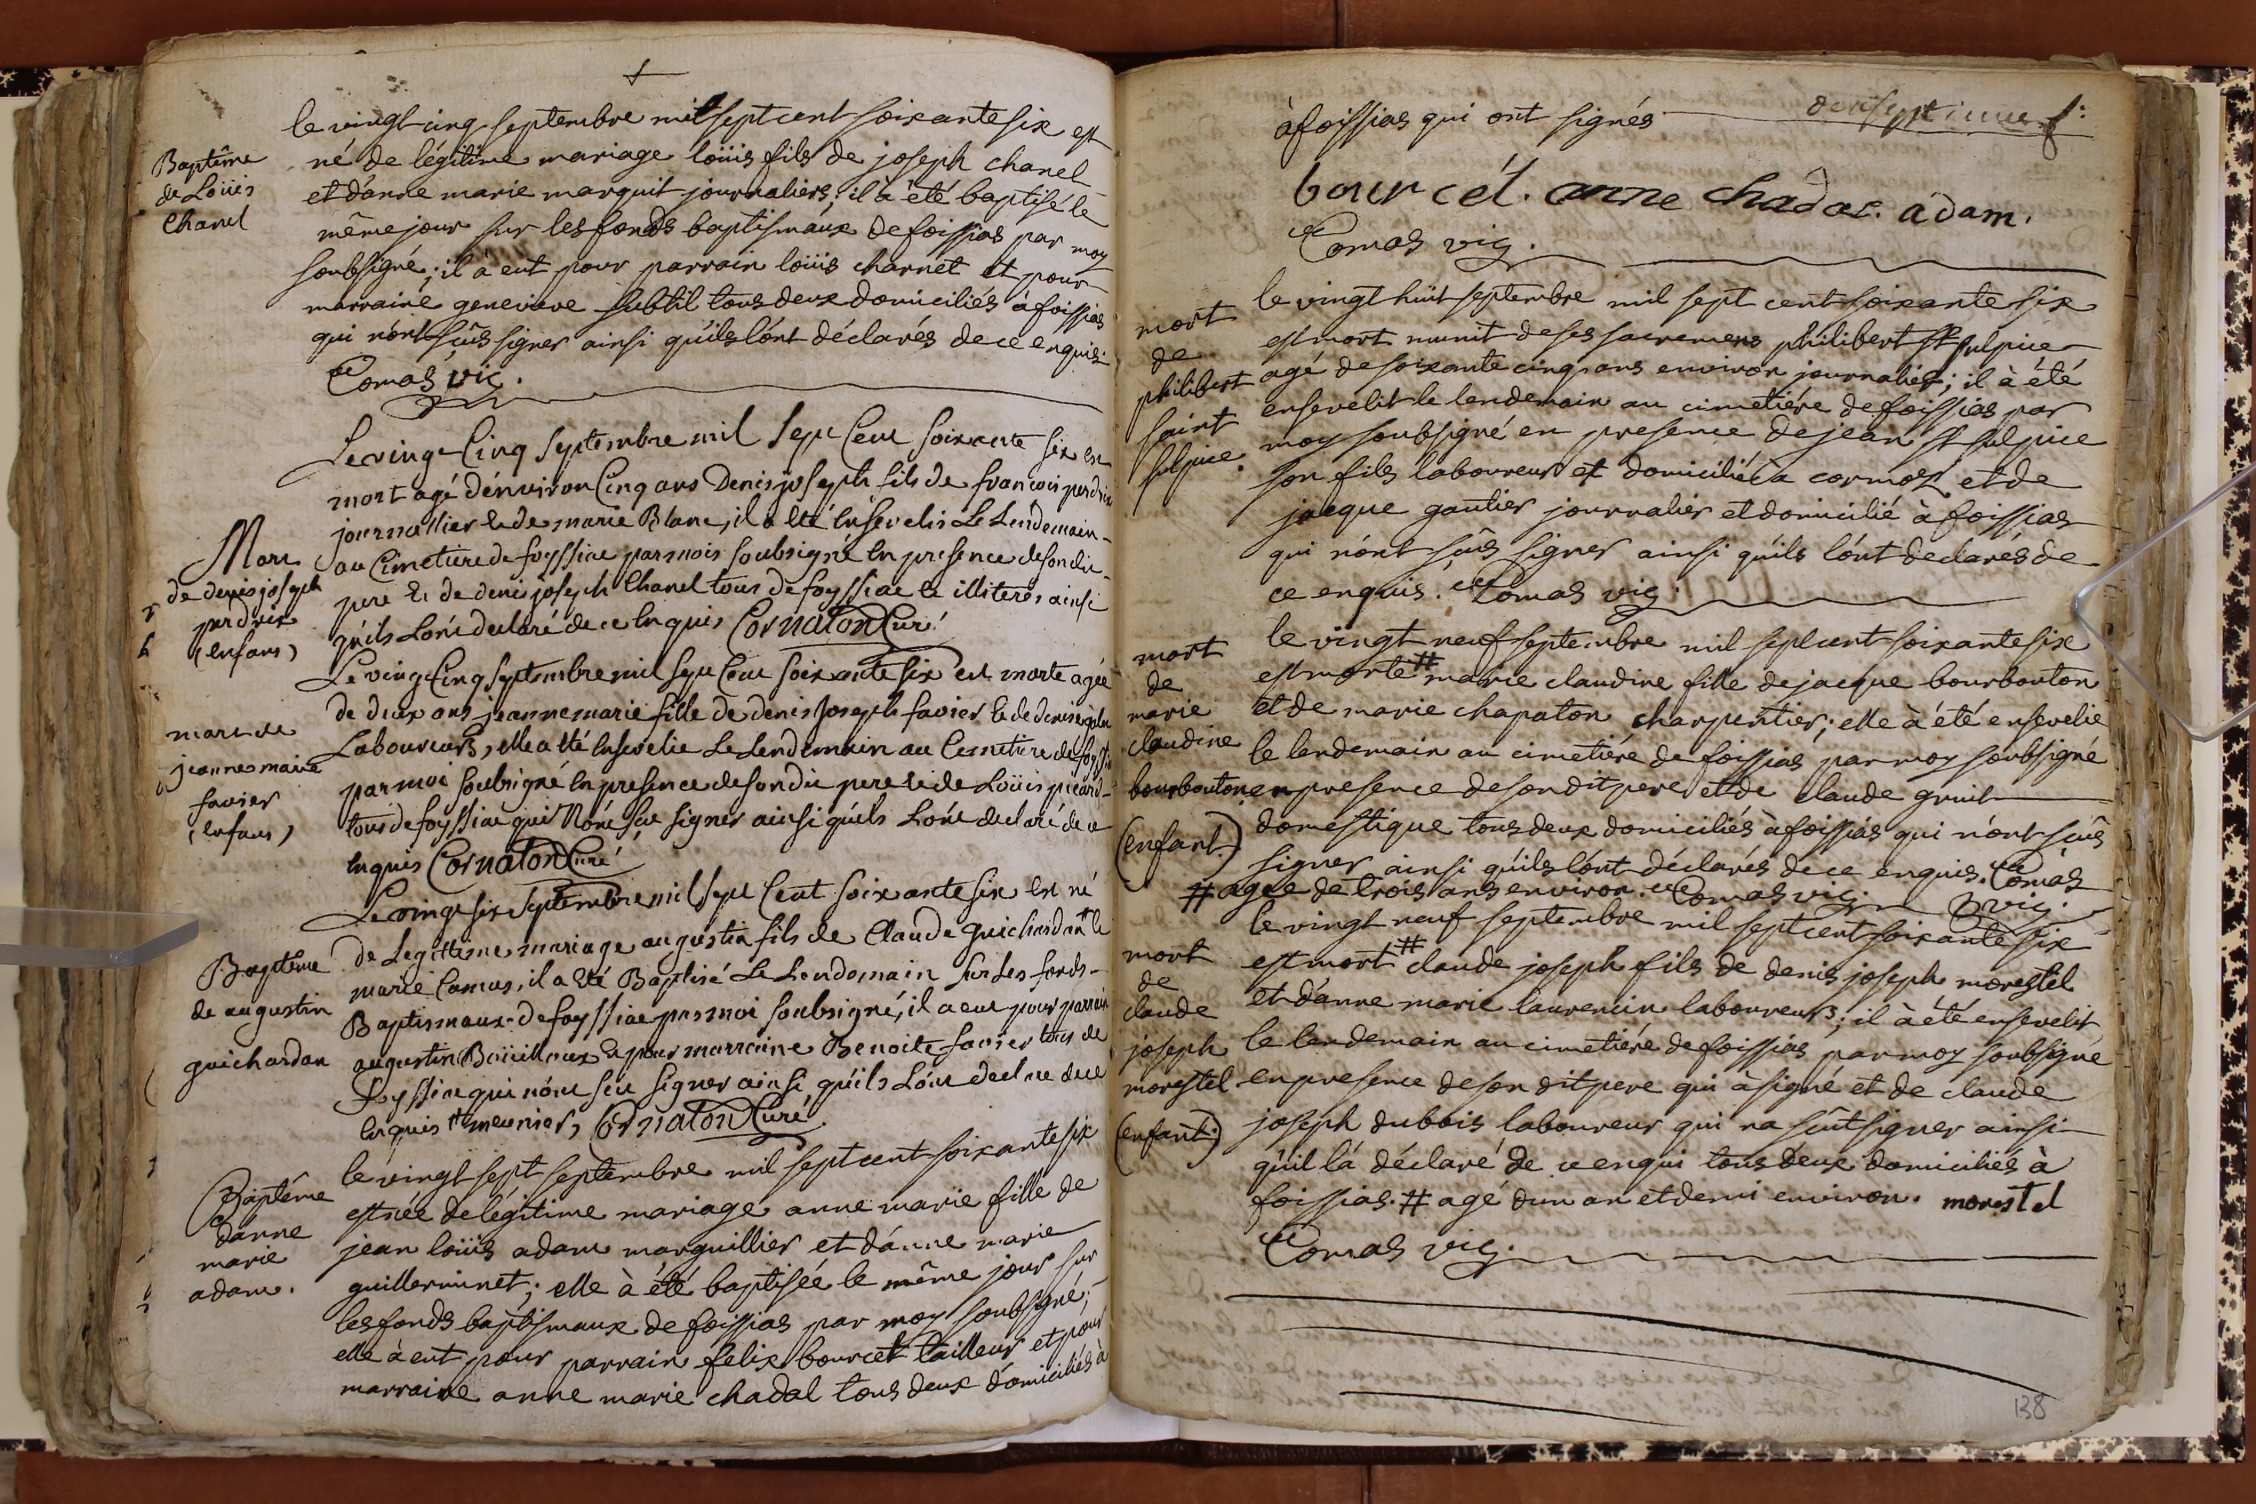 le vingt cinq septembre mil sept cent soixante six est
Baptême
de Loüis
Chanel
né de légitime mariage loüis fils de joseph chanel
et d'anne marie marguit journaliers; il à été baptisé le
même jour sur les fonds baptismaux de foissias par moy
soubsigné; il à eut pour parrain loüis charnet et pour
marraine genevieve subtil tous deux domiciliés à foissias
qui n'ont sûs signer ainsi qu'ils l'ont déclarés de ce enquis.
Comas vic.
Le vingt Cinq Septembre mil Sept Cent Soixante Six est
mort agé d'environ Cinq ans Denis joseph fils de francois perdrix
journallier et de marie Blanc, il a été Enseveli Le Lendemain
Mort
de denis joseph
perdrix
(enfans)
au Cimetiere de foyssiac par moi soubsigné En presence de son dit
pere et de denis joseph Chanel tous de foyssiac et illiterés ainsi
qu'ils L'ont declaré de ce Enquis Cornaton Curé
Le vingt Cinq Septembre mil Sept Cent Soixante Six est morte agée
de deux ans jeanne marie fille de denis Joseph favier et de denise
mort de
jeanne marie
favier
(enfans)
Laboureurs, elle a été Ensevelie Le Lendemain au Cemetiere de
par moi soubsigné En presence de son dit pere et de Loüis picard
tous de foyssiac qui N'ont Sçu signer ainsi qu'ils L'ont declaré de ce
Enquis Cornaton Curé
Le vingt six Septembre mil Sept Cent Soixante Six est né
de Legitime mariage augustin fils de Claude guichardan # et
Baptême
de augustin
guichardan
marie Camus, il a été Baptisé Le Lendemain sur Les fonds
Baptismaux de foyssiac par moi soubsigné, il a eut pour parrain
augustin Boüilloux et pour marraine Benoite favier tous de
foyssiac qui n'ont sçu signer ainsi qu'ils L'ont declaré de ce
Enquis # meunier, Cornaton Curé
le vingt sept septembre mil sept cent soixante six
Baptême
d'anne
marie
adam.
est née de légitime mariage anne marie fille de
jean loüis adam marguillier et d'anne marie
guillerminet; elle à été baptisée le même jour sur
les fonds baptismaux de foissias par moy soubsigné;
elle à eut pour parrain felix bourcet tailleur et pour
marraine anne marie chadal tous deux domiciliés à
à foissias qui ont signés
bourcél. anne chadal. adam.
Comas vic.
le vingt huit septembre mil sept cent soixante six
mort
de
philibert
saint
sulpice.
est mort munit de ses sacremens philibert st sulpice
agé de soixante cinq ans environ journalier; il à été
ensevelit le lendemain au cimetiére de foissias par
moy soubsigné en presence de jean st sulpice
son fils laboureur et domicilié à cormoz et de
jacque gautier journalier et domicilié à foissias
qui n'ont sûs signer ainsi qu'ils l'ont declarés de
ce enquis. Comas vic.
le vingt neuf septembre mil sept cent soixante six
mort
de
marie
claudine
bourbouton
(enfant.)
est morte # marie claudine fille de jacque bourbouton
et de marie chapaton charpentier; elle à été ensevelie
le lendemain au cimetiére de foissias par moy soubsigné
en presence de son dit pere et de claude gruit
domestique tous deux domiciliés à foissias qui n'ont sûs
signer ainsi qu'ils l'ont déclarés de ce enquis. Comas
# agée de trois ans environ. Comas vic. vic.
le vingt neuf septembre mil sept cent soixante six
mort
de
claude
joseph
morestel
(enfant.)
est mort # claude joseph fils de denis joseph morestel
et d'anne marie laurencin laboureurs; il à été ensevelit
le lendemain au cimetiére de foissias par moy soubsigné
en presence de son dit pere qui à signé et de claude
joseph dubois laboureur qui na sût signer ainsi
qu'il l'à déclaré de ce enqui tous deux domiciliés à
foissias. # agé d'un an et demi environ. morestel
Comas vic.
138